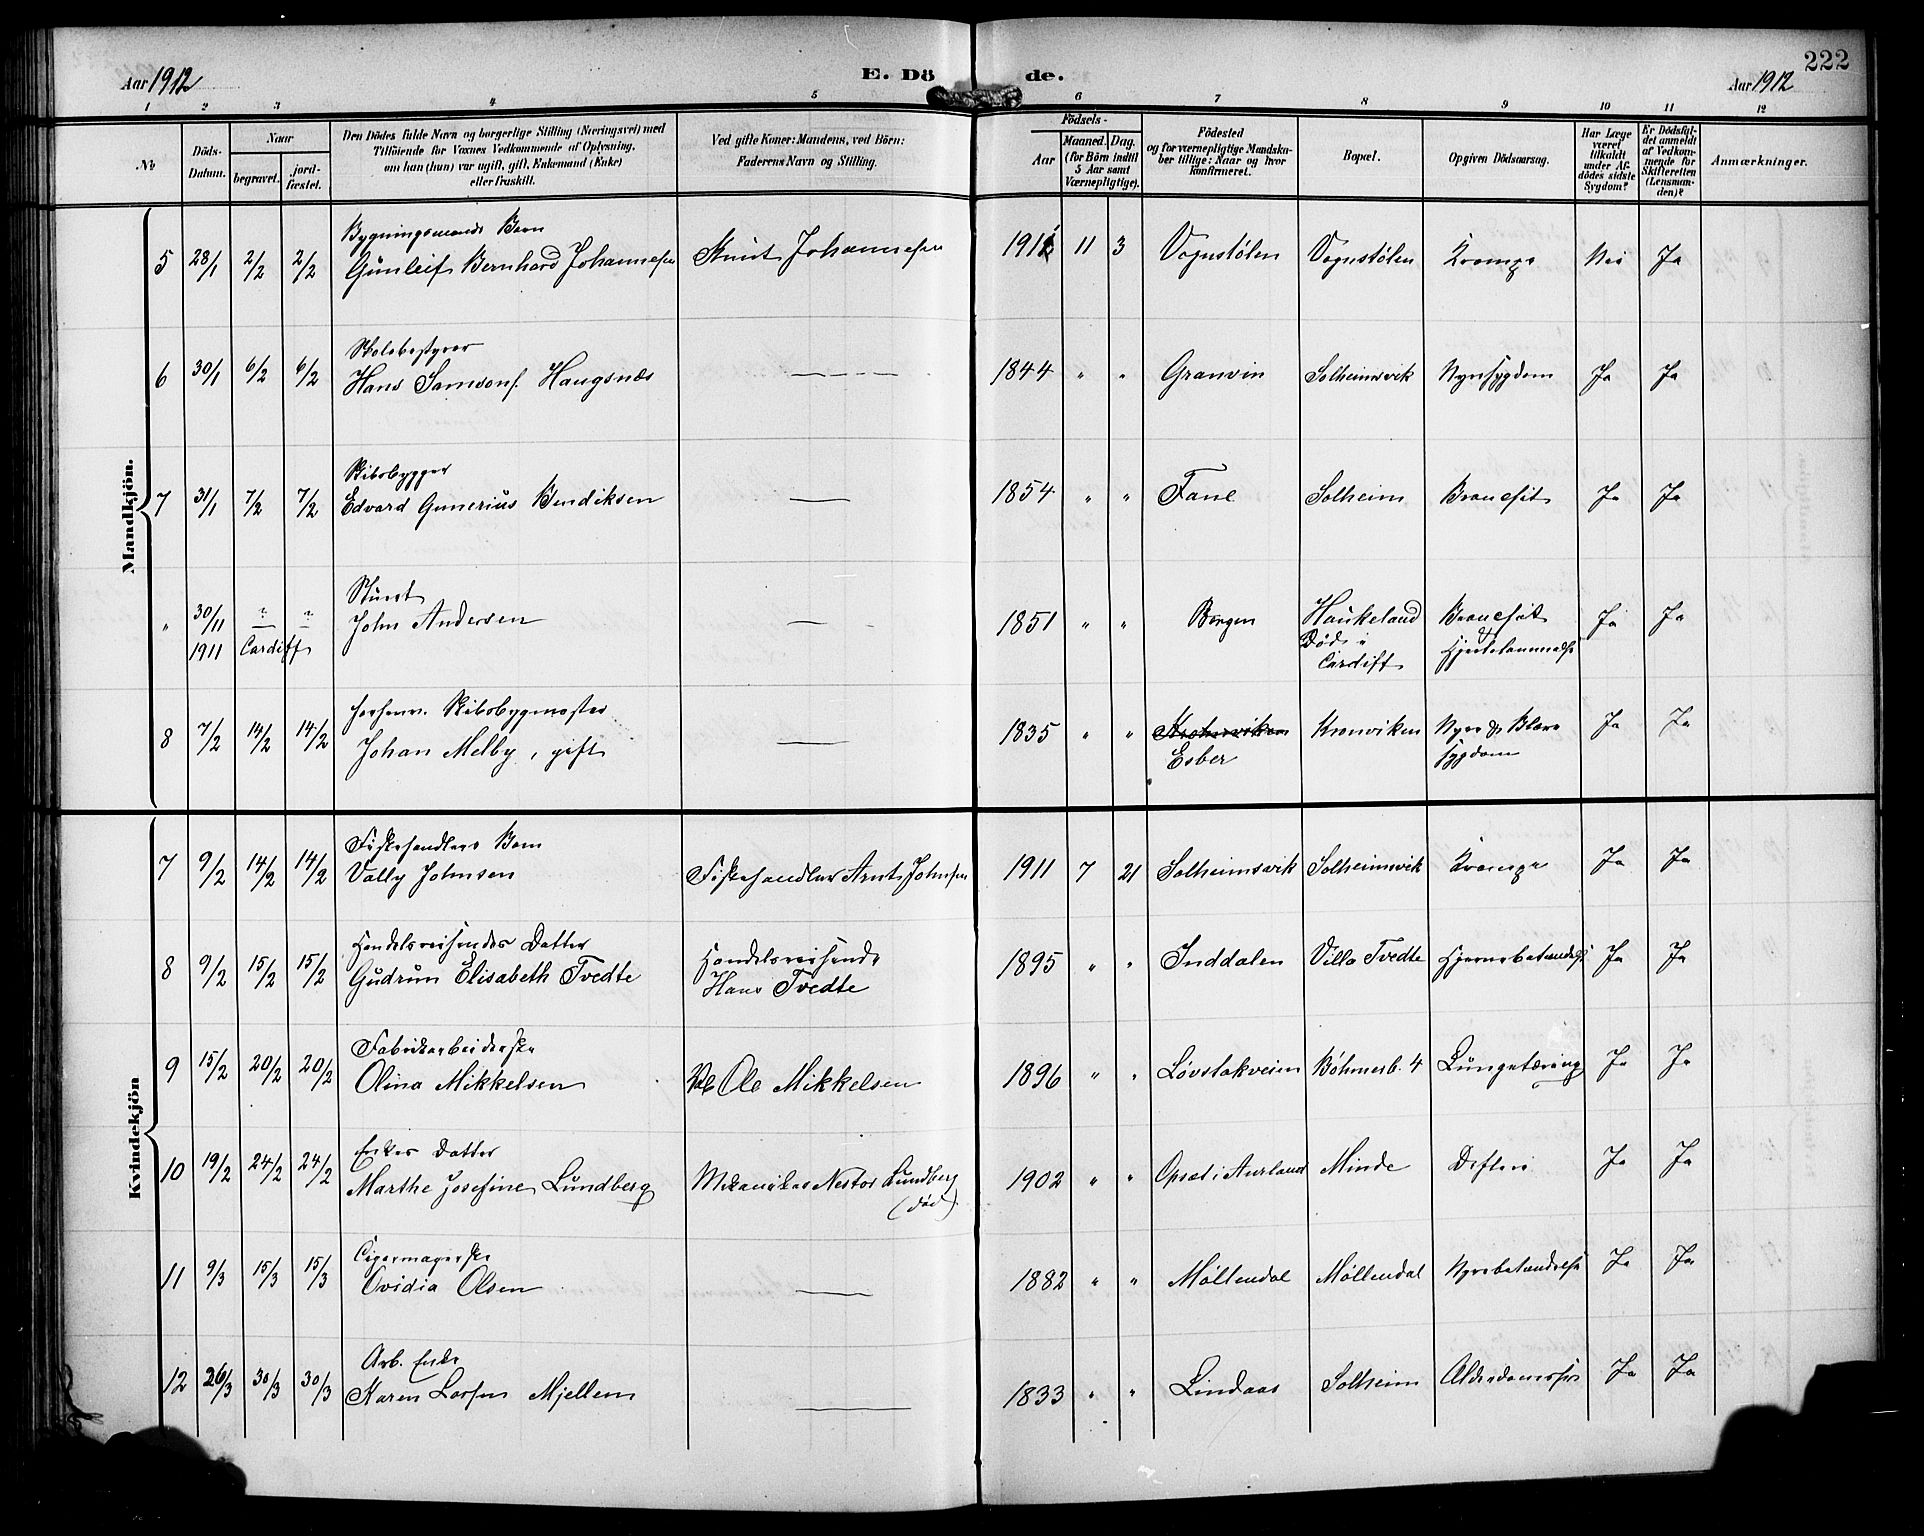 222
Aar 1912
E. Dö de.
Aar 1912
1 2 3 4 5 6 7 8 9 10 11 12
No
Döds-Datum.
Naar
begravet.
jord-fæstet.
Den Dödes fulde Navn og borgerlige Stilling (Næringsvei) med
Tilföiende for Voxnes Vedkommende af Oplysning,
om han (hun) var ugift, gift, Enkemand (Enke)
eller fraskilt.
Ved gifte Koner: Mandens, ved Börn:
Faderens Navn og Stilling.
Födsels-
Aar
Maaned. Dag.
(for Börn indtil
5 Aar samt
Værnepligtige).
Födested
og for værnepligtige Mandska-
ber tillige: Naar og hvor
konfirmeret.
Bopæl.
Opgiven Dödsaarsag.
Har Læge
været
tilkaldt
under Af-
dödes sidste
Sygdom?
Er Dödsfal-
det anmeldt
af Vedkom-
mende for
Skifteretten
(Lensman-
den)?
Anmærkninger.
Mandkjön.
Bygningsmands Barn
5 28/1 2/2 2/2 Gunleif Bernhard Johannesen Knut Johannesen 1911 11 3 Vognstølen Vognstølen Krampe Nei Ja
Skolebestyrer
6 30/1 6/2 6/2 Hans Samsons. Haugsnæs 1844 " " Granvin Solheimsvik Nyresygdom Ja Ja
Skibsbygger
7 31/1 7/2 7/2 Edvard Gunerius Bendiksen 1854 " " Fane Solheim Broncfit Ja Ja
Stuert
" 30/11 ? ? John Andersen 1851 " " Bergen Haukeland Broncfit Ja Ja
1911 Cardiff Død i & Hjertelammelse
Cardiff
forhenv. Skibsbygmester
8 7/2 14/2 14/2 Johan Melby, gift 1835 " " Kronviken Kronviken Nyre & Blære Ja Ja
Esber sygdom
Kvindekjön
Fiskehandlers Barn
7 9/2 14/2 14/2 Vally Johnsen Fiskehandler Arnt Johnsen 1911 7 21 Solheimsvik Solheimsvik Krampe Ja Ja
Handelsreisendes Datter Handelsreisende
8 9/2 15/2 15/2 Gudrun Elisabeth Tvedte Hans Tvedte 1895 " " Inddalen Villa Tvedte Hjernebetændelse Ja Ja
Fabrikarbeiderske
9 15/2 20/2 20/2 Olina Mikkelsen Ole Mikkelsen 1896 " " Løvstakveien Böhmersb. 4 Lungetæring Ja Ja
Enkes Datter
10 19/2 24/2 24/2 Marthe Josefine Lundberg Mekaniker Nestor Lundberg 1902 " " Opset i Aurland Minde Difteri Ja Ja
(død)
Cigarmagerske
11 9/3 15/3 15/3 Ovidia Olsen 1882 " " Møllendal Møllendal Nyrebetændelse Ja Ja
Arb. Enke
12 26/3 30/3 30/3 Karen Larsen Mjellem 1833 " " Lindaas Solheim Alderdomssv. Ja Ja